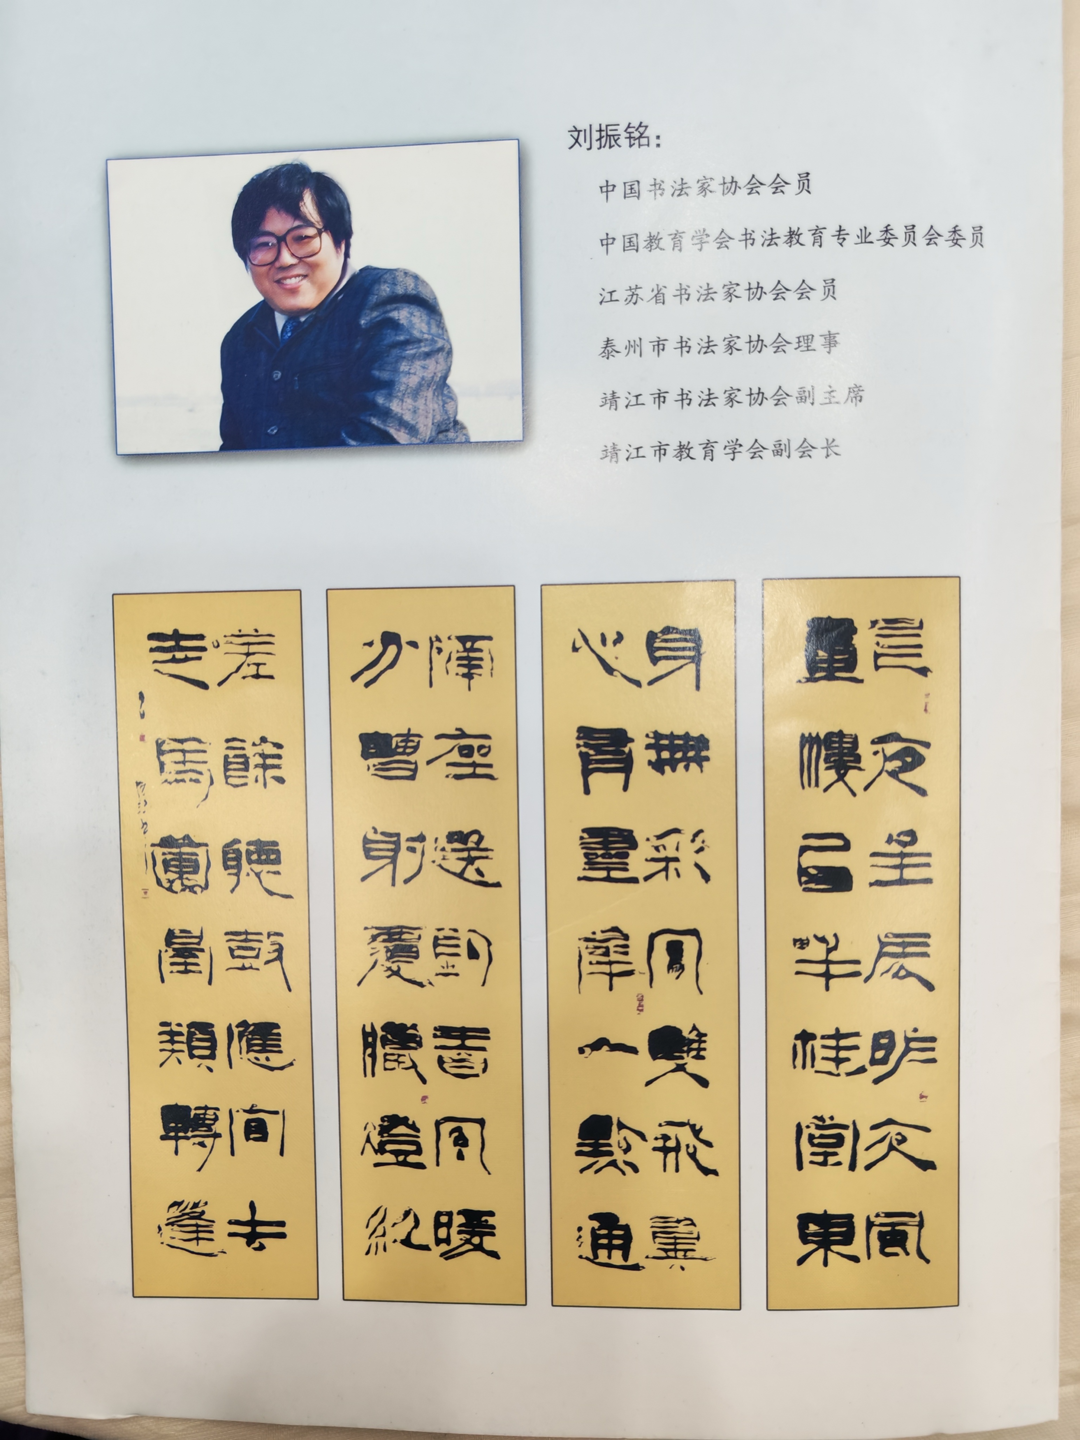 刘振铭：
中国书法家协会会员
中国教育学会书法教育专业委员会委员
江苏省书法家协会会员
泰州市书法家协会理事
靖江市书法家协会副主席
靖江市教育学会副会长
昨夜星辰昨夜風
畫樓西畔桂堂東
身無彩鳳雙飛翼
心有靈犀一點通
隔座送鉤春酒暖
分曹射覆臘燈紅
嗟餘聽鼓應官去
走馬蘭臺類轉蓬